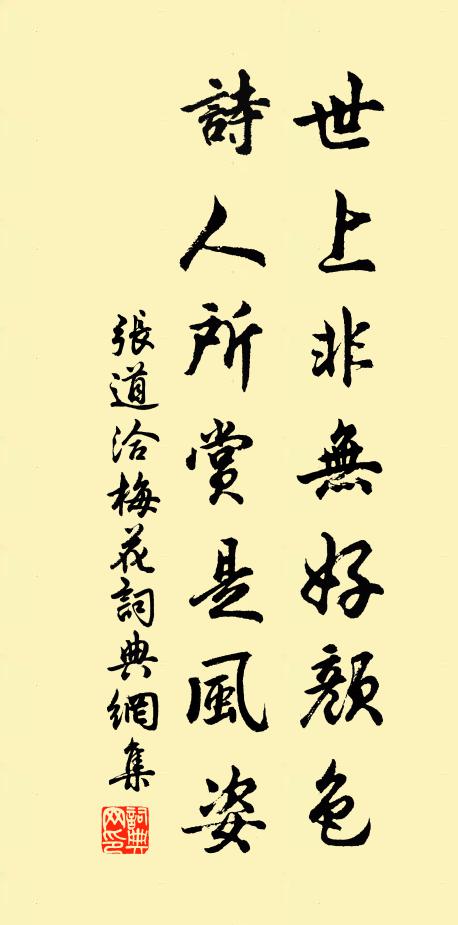 世上非無好顏色
詩人所賞是風姿
張道洽梅花詞典網集
詞典網印